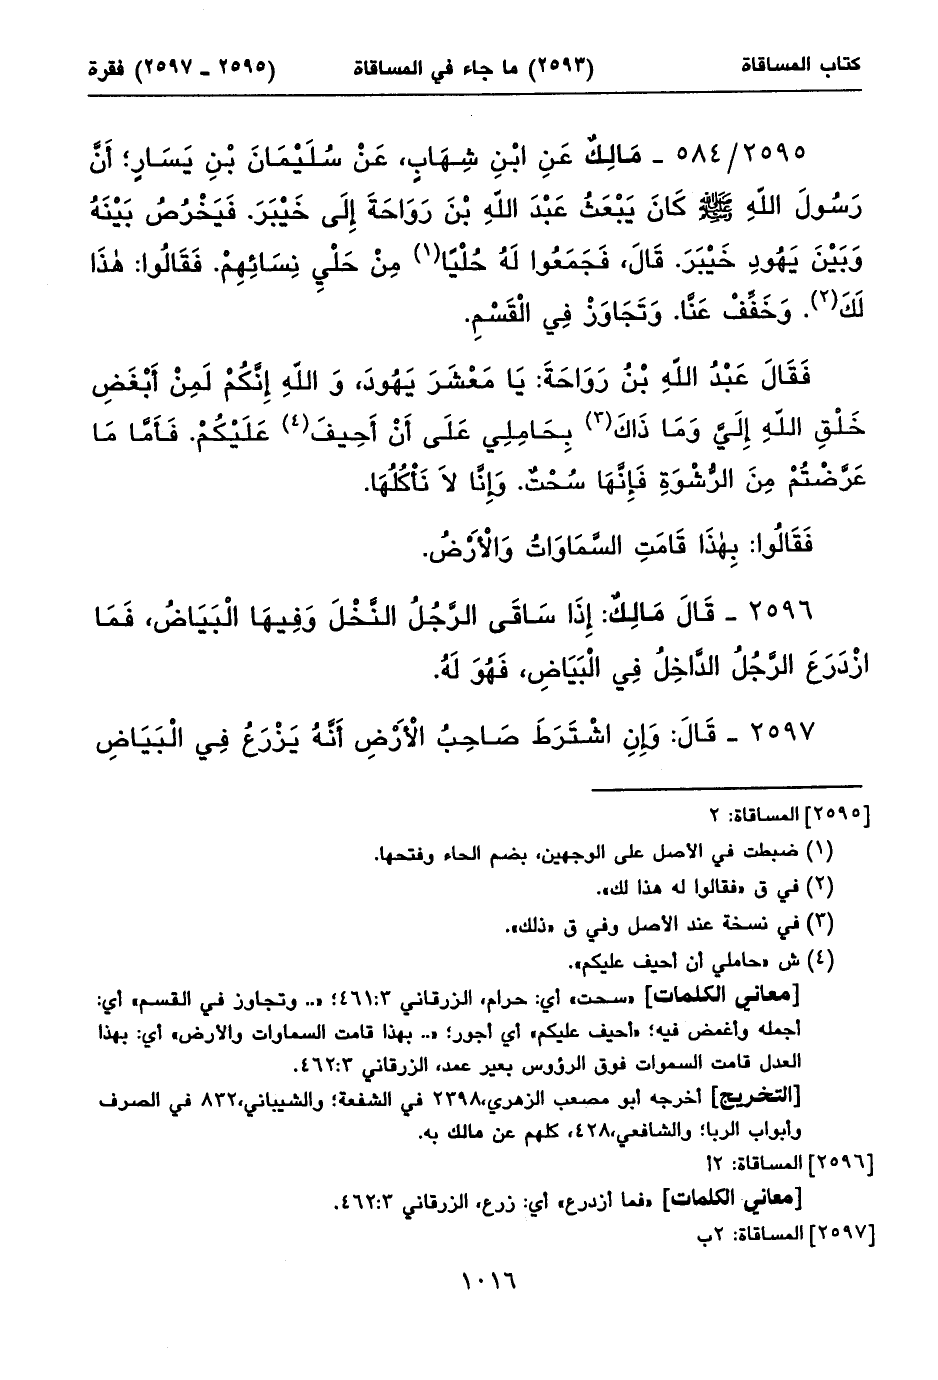 كتاب المساقاة (٢٥٩٣) ما جاء في المساقاة (٢٥٩٥ ـ ٢٥٩٧) فقرة
٢٥٩٥/ ٥٨٤ ـ مَالِكٌ عَنِ ابْنِ شِهَابٍ، عَنْ سُلَيْمَانَ بْنِ يَسَارٍ؛ أَنَّ
رَسُولَ اللهِ ﷺ كَانَ يَبْعَثُ عَبْدَ اللهِ بْنَ رَوَاحَةَ إِلَى خَيْبَرَ. فَيَخْرُصُ بَيْنَهُ
وَبَيْنَ يَهُودِ خَيْبَرَ. قَالَ، فَجَمَعُوا لَهُ حُلْيًا(١) مِنْ حَلْيِ نِسَائِهِمْ. فَقَالُوا: هٰذَا
لَكَ(٢). وَخَفِّفْ عَنَّا. وَتَجَاوَزْ فِي الْقَسْمِ.
فَقَالَ عَبْدُ اللهِ بْنُ رَوَاحَةَ: يَا مَعْشَرَ يَهُودَ، وَ اللهِ إِنَّكُمْ لَمِنْ أَبْغَضِ
خَلْقِ اللهِ إِلَيَّ وَمَا ذَاكَ(٣) بِحَامِلِي عَلَى أَنْ أَحِيفَ(٤) عَلَيْكُمْ. فَأَمَّا مَا
عَرَّضْتُمْ مِنَ الرُّشْوَةِ فَإِنَّهَا سُحْتٌ. وَإِنَّا لاَ نَأْكُلُهَا.
فَقَالُوا: بِهٰذَا قَامَتِ السَّمَاوَاتُ وَالْأَرْضُ.
٢٥٩٦ ـ قَالَ مَالِكٌ: إِذَا سَاقَى الرَّجُلُ النَّخْلَ وَفِيهَا الْبَيَاضُ، فَمَا
ازْدَرَعَ الرَّجُلُ الدَّاخِلُ فِي الْبَيَاضِ، فَهُوَ لَهُ.
٢٥٩٧ ـ قَالَ: وَإِنِ اشْتَرَطَ صَاحِبُ الْأَرْضِ أَنَّهُ يَزْرَعُ فِي الْبَيَاضِ
[٢٥٩٥] المساقاة: ٢
(١) ضبطت في الأصل على الوجهين، بضم الحاء وفتحها.
(٢) في ق «فقالوا له هذا لك».
(٣) في نسخة عند الأصل وفي ق «ذلك».
(٤) ش «حاملي أن أحيف عليكم».
[معاني الكلمات] «سحت» أي: حرام، الزرقاني ٣:٤٦١؛ «.. وتجاوز في القسم» أي:
أجمله وأغمض فيه؛ «أحيف عليكم» أي أجور؛ «.. بهذا قامت السماوات والأرض» أي: بهذا
العدل قامت السموات فوق الرؤوس بعير عمد، الزرقاني ٣:٤٦٢.
[التخريج] أخرجه أبو مصعب الزهري،٢٣٩٨ في الشفعة؛ والشيباني،٨٣٢ في الصرف
وأبواب الربا؛ والشافعي،٤٢٨، كلهم عن مالك به.
[٢٥٩٦] المساقاة: ٢أ
[معاني الكلمات] «فما أزدرع» أي: زرع، الزرقاني ٣:٤٦٢.
[٢٥٩٧] المساقاة: ٢ب
١٠١٦